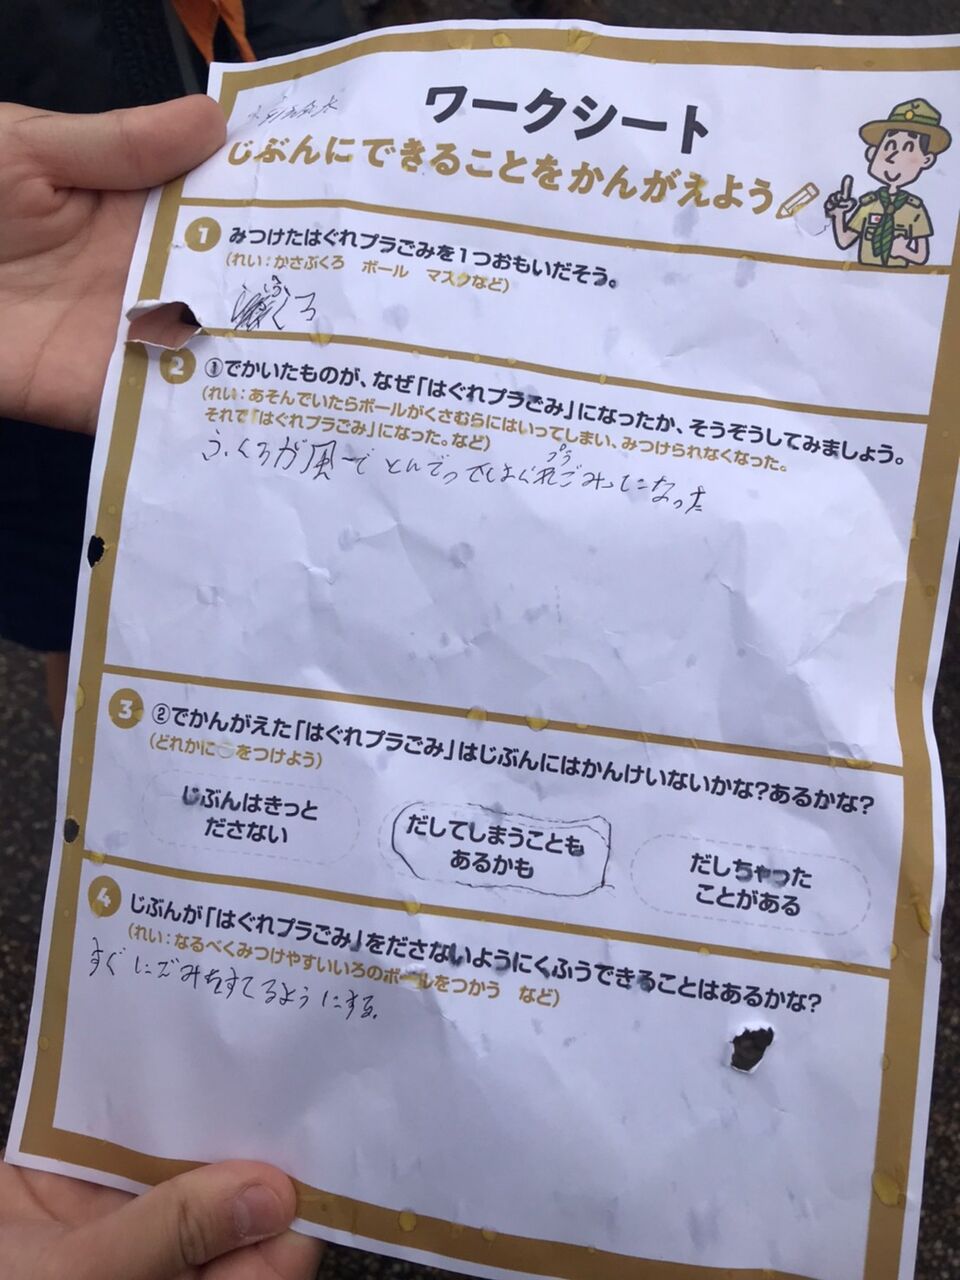 ワークシート
じぶんにできることをかんがえよう
1 みつけたはぐれプラごみを1つおもいだそう。
(れい:かさぶくろ ボール マスクなど)
ふくろ
2 ①でかいたものが、なぜ「はぐれプラごみ」になったか、そうぞうしてみましょう。
(れい:あそんでいたらボールがくさむらにはいってしまい、みつけられなくなった。
それで「はぐれプラごみ」になった。など)
プラ
ふくろが風でとんでってはぐれごみになった
3 ②でかんがえた「はぐれプラごみ」はじぶんにはかんけいないかな?あるかな?
(どれかに○をつけよう)
じぶんはきっと
ださない
だしてしまうことも
あるかも
だしちゃった
ことがある
4 じぶんが「はぐれプラごみ」をださないようにくふうできることはあるかな?
(れい:なるべくみつけやすいいろのボールをつかう など)
すぐにごみをすてるようにする。